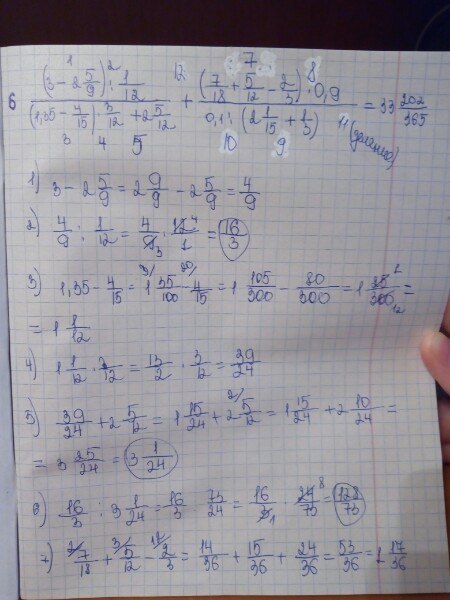 1 2 12 7 8
6 (3 - 2 5/9) : 1/12 / (1,35 - 4/15) · 3/12 + 2 5/12 + (7/18 + 5/12 - 2/3) · 0,9 / 0,1 : (2 1/15 + 1/3) = 33 202/365
3 4 5 10 9 11 (деление)
1) 3 - 2 5/9 = 2 9/9 - 2 5/9 = 4/9
2) 4/9 : 1/12 = 4/9 3 · 12 4/1 = 16/3
3) 1,35 - 4/15 = 1 35/100 3/ - 4/15 20/ = 1 105/300 - 80/300 = 1 25 1/300 12 =
= 1 1/12
4) 1 1/12 · 3/12 = 13/2 · 3/12 = 39/24
5) 39/24 + 2 5/12 = 1 15/24 + 2 5/12 2/ = 1 15/24 + 2 10/24 =
= 3 25/24 = 3 1/24
6) 16/3 : 3 1/24 = 16/3 · 73/24 = 16/3 1 · 24 8/73 = 128/73
7) 2/ 7/18 + 3/ 5/12 - 12/ 2/3 = 14/36 + 15/36 + 24/36 = 53/36 = 1 17/36